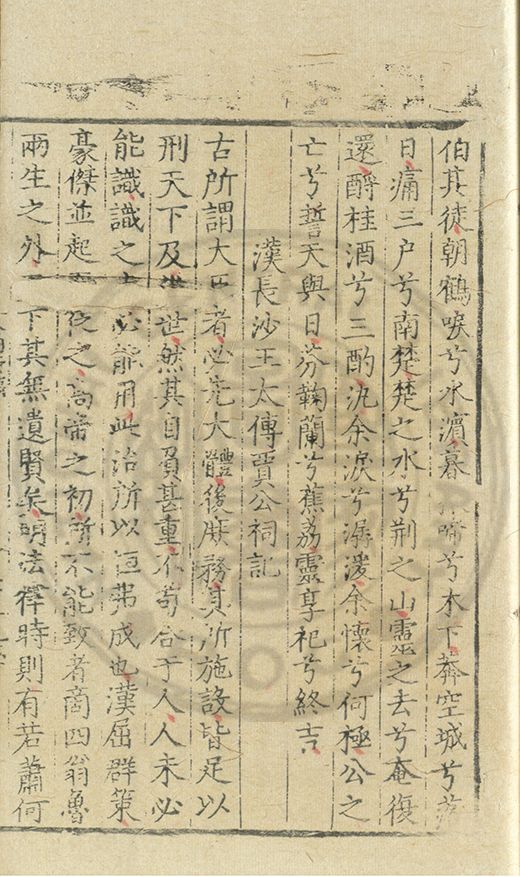 伯其徒朝鶴唳兮水濱暮啼兮木下奔空城兮
日痛三户兮南楚楚之水兮荆之山靈之去兮奄復
還酹桂酒兮三酌氿余淚兮潺湲余懷兮何極公之
亡兮誓天與日芬鞠蘭兮蕉荔靈享祀兮終吉
漢長沙王太傅賈公祠記
古所謂大臣者必先大體後庶務其所施設皆足以
刑天下及世然其自負甚重不苟合于人人未必
能識識之必能用此治所以恒弗成也漢屈群策
豪傑並起之高帝之初所不能致者商四翁魯
兩生之外下其無遺賢矣明法律時則有若蕭何